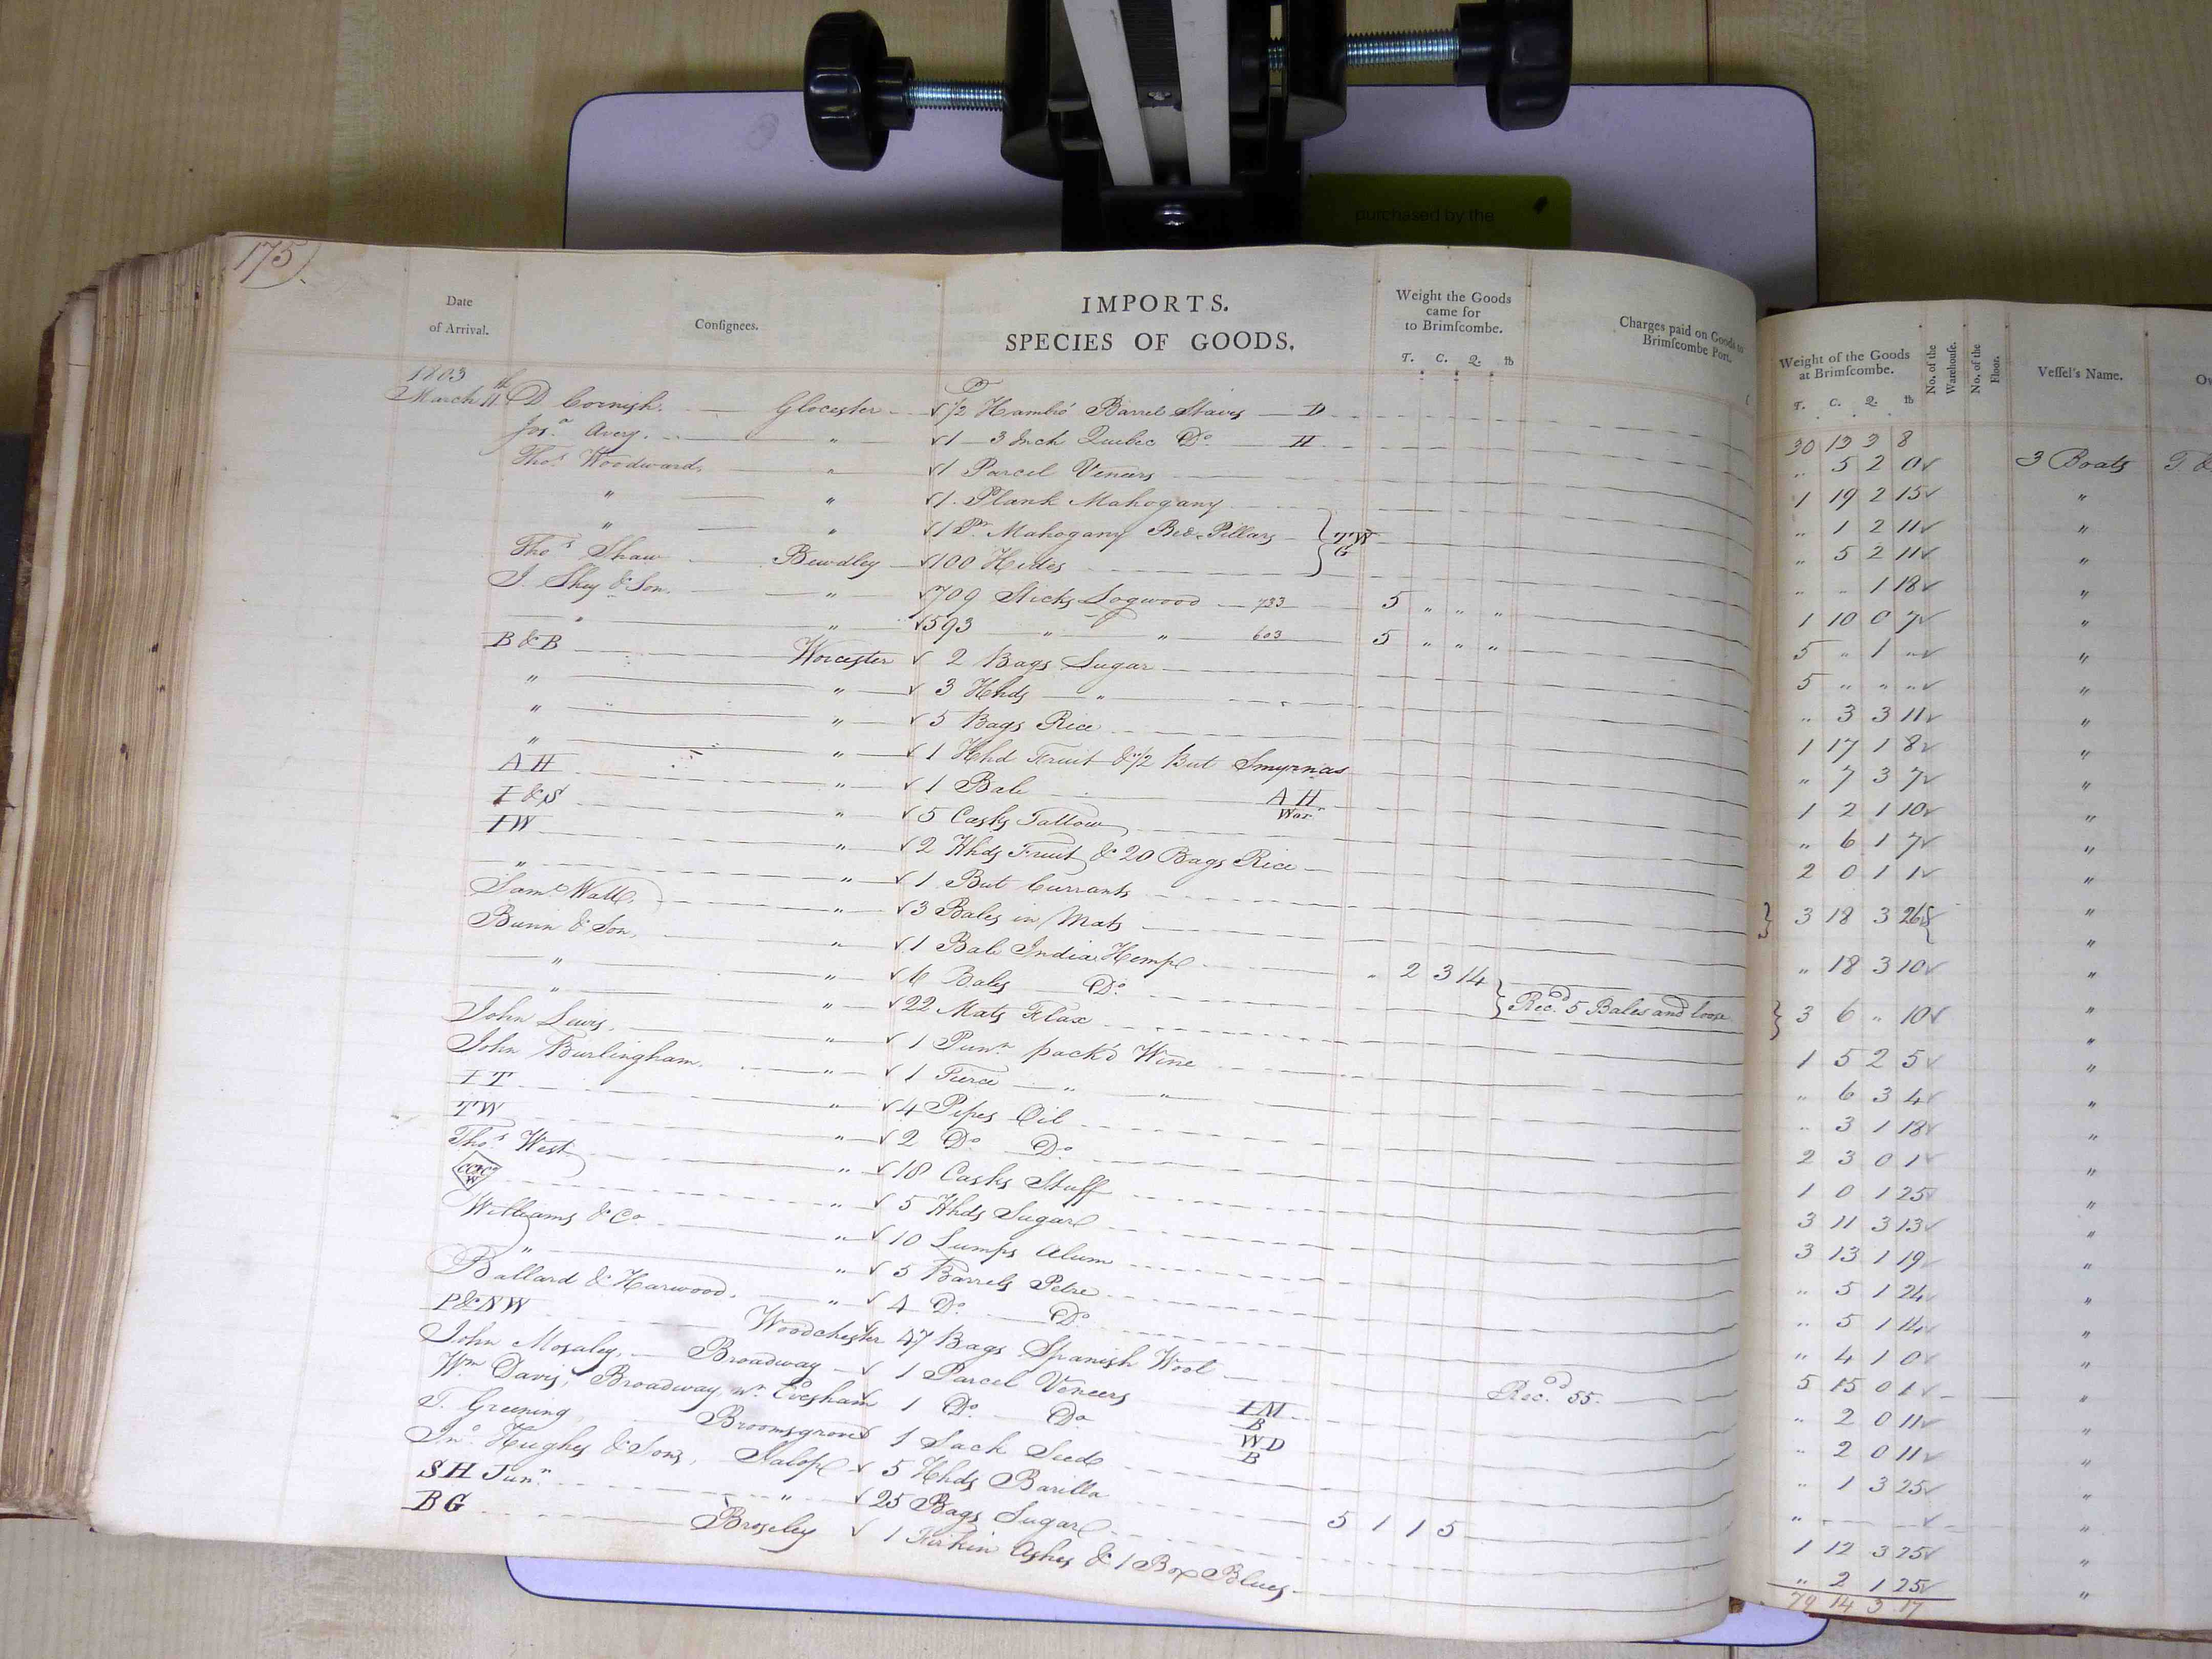 purchased by the
175
Date of Arrival.
Consignees.
IMPORTS.
SPECIES OF GOODS.
Weight the Goods came for to Brimscombe.
T. C. Q. lb
Charges paid on Goods to Brimscombe Port.
Weight of the Goods at Brimscombe.
T. C. Q. lb
No. of the Warehouse.
No. of the Floor.
Vessel's Name.
1803
30 13 3 8
March 11th D Cornish. Glocester √ 1/2 Hambro' Barrel Staves D " 5 2 0√ 3 Boats
Jos.a Avery. " √1 3 Inch Quebec Do H 1 19 2 15√ "
Thos. Woodward. " √1 Parcel Veneers " 1 2 11√ "
" " √1 Plank Mahogany " 5 2 11√ "
" " √1 Pr. Mahogany Bed Pillars } TW G " " 1 18√ "
Thos. Shaw Bewdley √100 Hides 1 10 0 7√ "
J. Shey & Son. " √709 Sticks Logwood 733 5 " " " 5 " 1 "√ "
" " √593 " " 603 5 " " " 5 " " "√ "
B & B Worcester √ 2 Bags Sugar " 3 3 11√ "
" " √ 3 Hhds " 1 17 1 8√ "
" " √ 5 Bags Rice " 7 3 7√ "
" " √ 1 Hhd Fruit & 1/2 But Smyrnas 1 2 1 10√ "
A H " √ 1 Bale A H Wor. " 6 1 7√ "
I & S " √ 5 Casks Tallow 2 0 1 1√ "
I W " √ 2 Hhds Fruit & 20 Bags Rice } 3 18 3 26√ "
" " √ 1 But Currants "
Saml Wall. " √ 3 Bales in Mats " 18 3 10√ "
Bunn & Son. " √ 1 Bale India Hemp " 2 3 14 } 3 6 " 10√ "
" " √ 6 Bales Do. } Recd. 5 Bales and loose "
" " √22 Mats Flax 1 5 2 5√ "
John Lewis. " √ 1 Punn. pack'd Wine " 6 3 4√ "
John Burlingham. " √ 1 Tierce " " " 3 1 18√ "
I T " √ 4 Pipes Oil 2 3 0 1√ "
T W " √ 2 Do. Do. 1 0 1 25√ "
Thos. West " √ 18 Casks Stuff 3 11 3 13√ "
W " √ 5 Hhds Sugar 3 13 1 19√ "
Williams & Co. " √ 10 Lumps Alum " 5 1 24√ "
" " √ 5 Barrels Petre " 5 1 14√ "
Ballard & Harwood. " √ 4 Do. Do. " 4 1 0√ "
P & NW Woodchester 47 Bags Spanish Wool Recd. 55. 5 15 0 1√ "
John Mosaley. Broadway √ 1 Parcel Veneers I M B " 2 0 11√ "
Wm Davis, Broadway, nr. Evesham 1 Do. Do W D B " 2 0 11√ "
T. Greening Broomsgrove 1 Sack Seed " 1 3 25√ "
Jno. Hughes & Sons, Salop √ 5 Hhds Barilla 5 1 1 5 " √ "
S H Junr. " √25 Bags Sugar 1 12 3 25√ "
B G Broseley √ 1 Firkin Ashes & 1 Box Blues " 2 1 25√ "
79 14 3 17